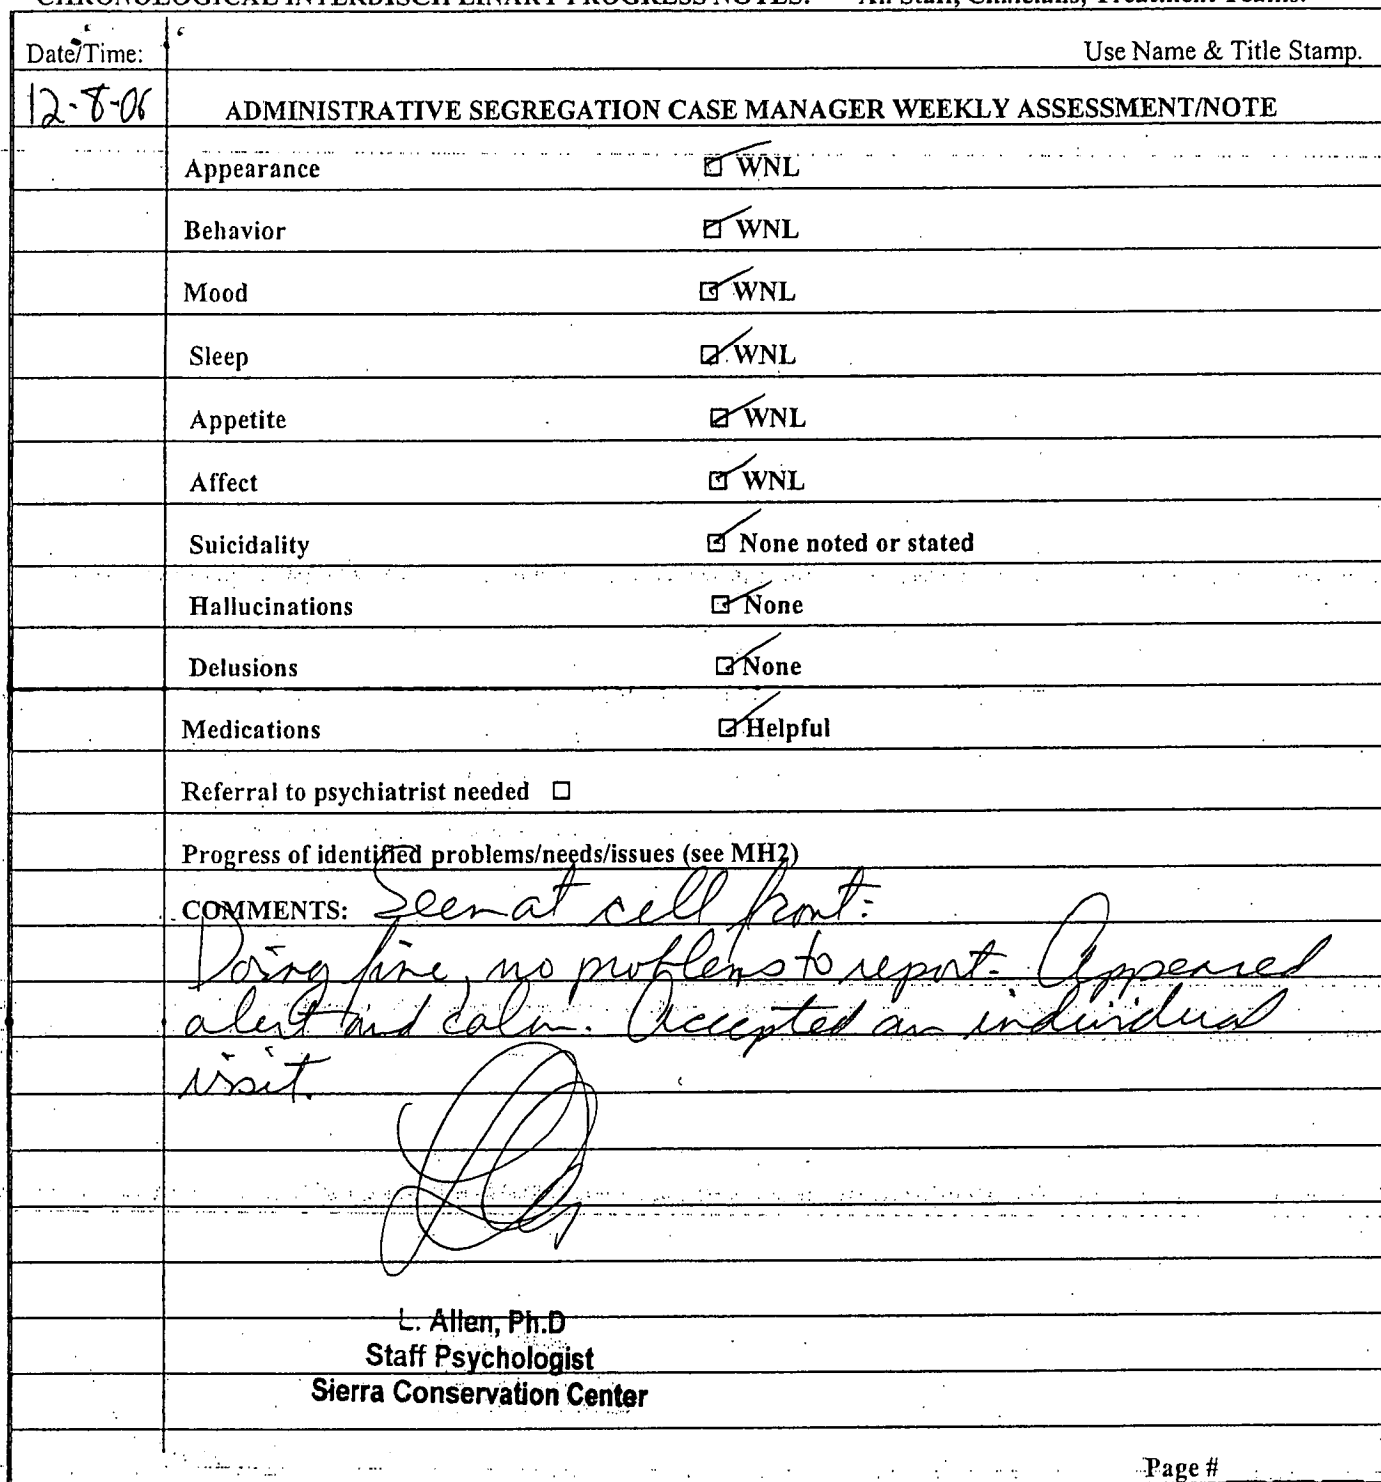 CHRONOLOGICAL INTERDISCIPLINARY PROGRESS NOTES. All Staff, Clinicians, Treatment Teams.
Date/Time: Use Name & Title Stamp.
12-8-06 ADMINISTRATIVE SEGREGATION CASE MANAGER WEEKLY ASSESSMENT/NOTE
Appearance ☑ WNL
Behavior ☑ WNL
Mood ☑ WNL
Sleep ☑ WNL
Appetite ☑ WNL
Affect ☑ WNL
Suicidality ☑ None noted or stated
Hallucinations ☑ None
Delusions ☑ None
Medications ☑ Helpful
Referral to psychiatrist needed ☐
Progress of identified problems/needs/issues (see MH2)
COMMENTS: Seen at cell front:
Doing fine, no problems to report. Appeared
alert and calm. Accepted an individual
visit.
L. Allen, Ph.D
Staff Psychologist
Sierra Conservation Center
Page #